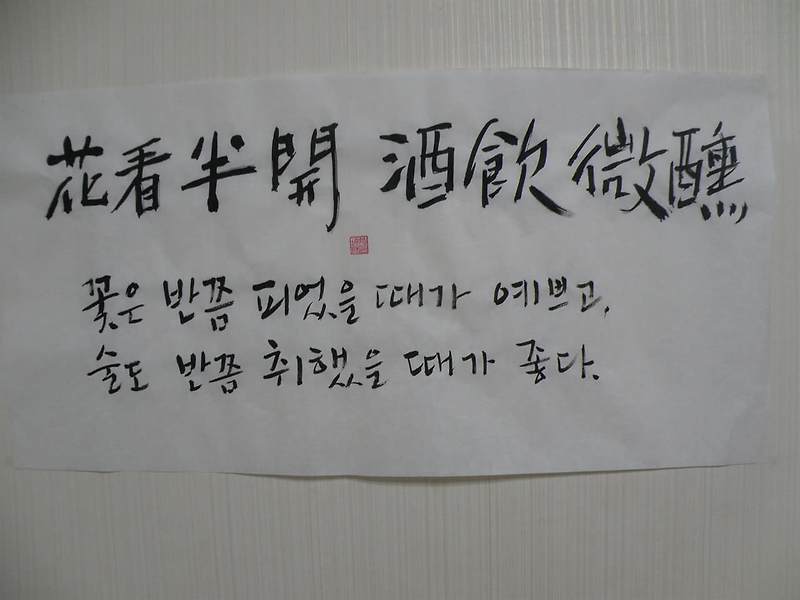 花看半開 酒飮微醺
꽃은 반쯤 피었을 때가 예쁘고,
술도 반쯤 취했을 때가 좋다.